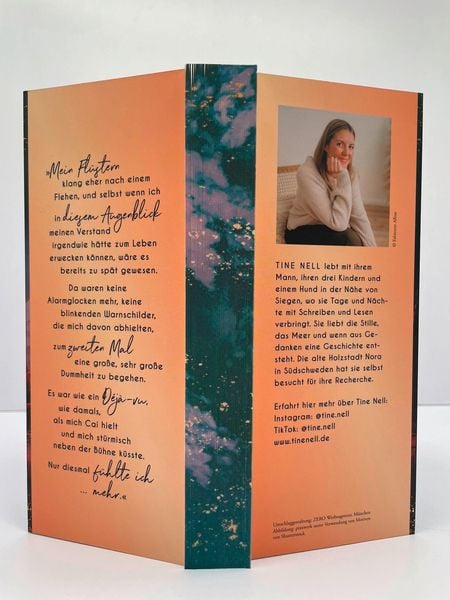 »Mein Flüstern
klang eher nach einem
Flehen, und selbst wenn ich
in diesem Augenblick
meinen Verstand
irgendwie hätte zum Leben
erwecken können, wäre es
bereits zu spät gewesen.
Da waren keine
Alarmglocken mehr, keine
blinkenden Warnschilder,
die mich davon abhielten,
zum zweiten Mal
eine große, sehr große
Dummheit zu begehen.
Es war wie ein Déjà-vu,
wie damals,
als mich Cai hielt
und mich stürmisch
neben der Bühne küsste.
Nur diesmal fühlte ich
... mehr.«
TINE NELL lebt mit ihrem
Mann, ihren drei Kindern und
einem Hund in der Nähe von
Siegen, wo sie Tage und Näch-
te mit Schreiben und Lesen
verbringt. Sie liebt die Stille,
das Meer und wenn aus Ge-
danken eine Geschichte ent-
steht. Die alte Holzstadt Nora
in Südschweden hat sie selbst
besucht für ihre Recherche.
Erfahrt hier mehr über Tine Nell:
Instagram: @tine.nell
TikTok: @tine.nell
www.tinenell.de
Umschlaggestaltung: ZERO Werbeagentur, München
Abbildung: pixxwerk unter Verwendung von Motiven
von Shutterstock